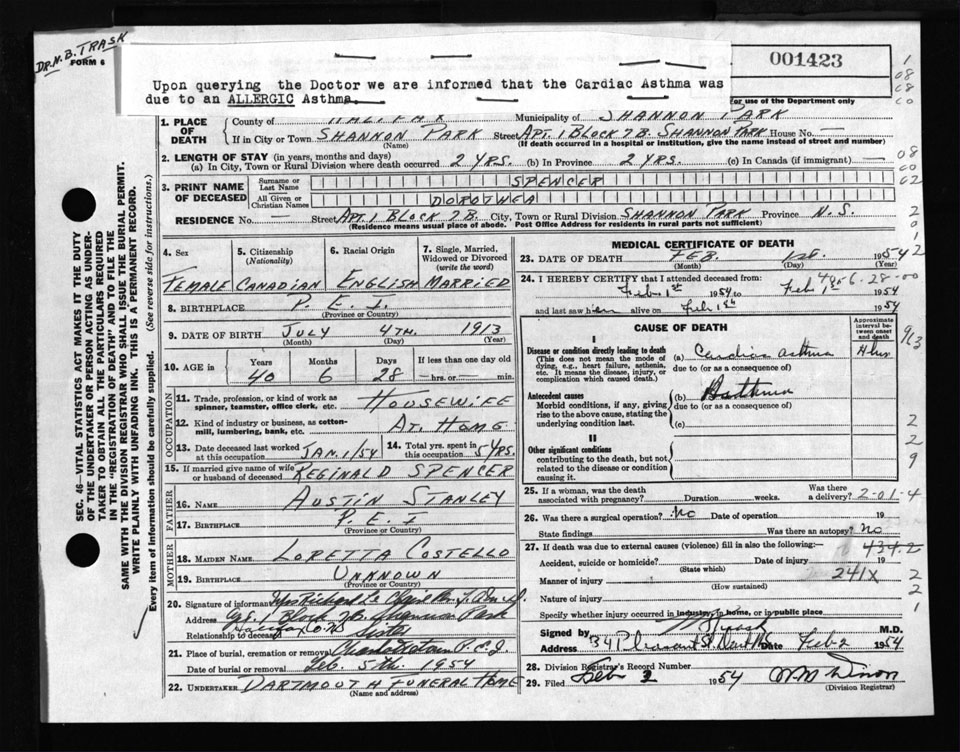 DR. N. B. TRASK
FORM 6
Upon querying the Doctor we are informed that the Cardiac Asthma was
due to an ALLERGIC Asthma
001423
For use of the Department only
1. PLACE OF DEATH
County of HALIFAX Municipality of SHANNON PARK
If in City or Town SHANNON PARK Street APT. 1 BLOCK 7B. SHANNON PARK House No. —
(Name) (If death occurred in a hospital or institution, give the name instead of street and number)
2. LENGTH OF STAY (in years, months and days)
(a) In City, Town or Rural Division where death occurred 2 YRS. (b) In Province 2 YRS. (c) In Canada (if immigrant) —
3. PRINT NAME OF DECEASED
Surname or Last Name SPENCER
All Given or Christian Names DOROTHEA
RESIDENCE No. — Street APT. 1 BLOCK 7B. City, Town or Rural Division SHANNON PARK Province N.S.
(Residence means usual place of abode. Post Office Address for residents in rural parts not sufficient)
4. Sex FEMALE
5. Citizenship (Nationality) CANADIAN
6. Racial Origin ENGLISH
7. Single, Married, Widowed or Divorced (write the word) MARRIED
8. BIRTHPLACE P. E. I.
(Province or Country)
9. DATE OF BIRTH JULY 4TH. 1913
(Month) (Day) (Year)
10. AGE in Years 40 Months 6 Days 28 If less than one day old — hrs. or — min.
OCCUPATION
11. Trade, profession, or kind of work as spinner, teamster, office clerk, etc. HOUSEWIFE
12. Kind of industry or business, as cotton-mill, lumbering, bank, etc. AT. HOME
13. Date deceased last worked at this occupation JAN. 1/54 14. Total yrs. spent in this occupation 5 YRS.
15. If married give name of wife or husband of deceased REGINALD SPENCER
FATHER
16. NAME AUSTIN STANLEY
17. BIRTHPLACE P. E. I
(Province or Country)
MOTHER
18. MAIDEN NAME LORETTA COSTELLO
19. BIRTHPLACE UNKNOWN
(Province or Country)
20. Signature of informant Mrs Richard
Address Apt. 1 Block 7B. Shannon Park
Halifax Co.
Relationship to deceased Sister
21. Place of burial, cremation or removal Charlottetown P.E.I.
Date of burial or removal Feb. 5th. 1954
22. UNDERTAKER DARTMOUTH FUNERAL HOME
(Name and address)
MEDICAL CERTIFICATE OF DEATH
23. DATE OF DEATH FEB. 1st. 1954
(Month) (Day) (Year)
24. I HEREBY CERTIFY that I attended deceased from:
Feb 1st 1954 to Feb 1st 1954
and last saw h er alive on Feb 1st 1954
CAUSE OF DEATH
Approximate interval between onset and death
I
Disease or condition directly leading to death (a) Cardiac asthma
(This does not mean the mode of dying, e.g., heart failure, asthenia, etc. It means the disease, injury, or complication which caused death.)
due to (or as a consequence of)
Antecedent causes (b) Asthma
Morbid conditions, if any, giving rise to the above cause, stating the underlying condition last.
due to (or as a consequence of)
(c)
II
Other significant conditions
contributing to the death, but not related to the disease or condition causing it.
25. If a woman, was the death associated with pregnancy? Duration weeks. Was there a delivery? 2-01-4
26. Was there a surgical operation? No Date of operation 19
State findings Was there an autopsy? No
27. If death was due to external causes (violence) fill in also the following:— 434.2
Accident, suicide or homicide? Date of injury 19
(State which) 241X
Manner of injury
(How sustained)
Nature of injury
Specify whether injury occurred in industry, in home, or in public place
Signed by Trask M.D.
34 Pleasant St. Dart. N.S. Date Feb 2 1954
28. Division Registrar's Record Number
29. Filed Feb 2 1954
(Division Registrar)
SEC. 46—VITAL STATISTICS ACT MAKES IT THE DUTY
OF THE UNDERTAKER OR PERSON ACTING AS UNDER-
TAKER TO OBTAIN ALL THE PARTICULARS REQUIRED
IN THE "REGISTRATION OF DEATH" AND TO FILE THE
SAME WITH THE DIVISION REGISTRAR WHO SHALL ISSUE THE BURIAL PERMIT.
WRITE PLAINLY WITH UNFADING INK. THIS IS A PERMANENT RECORD.
Every item of Information should be carefully supplied. (See reverse side for instructions.)